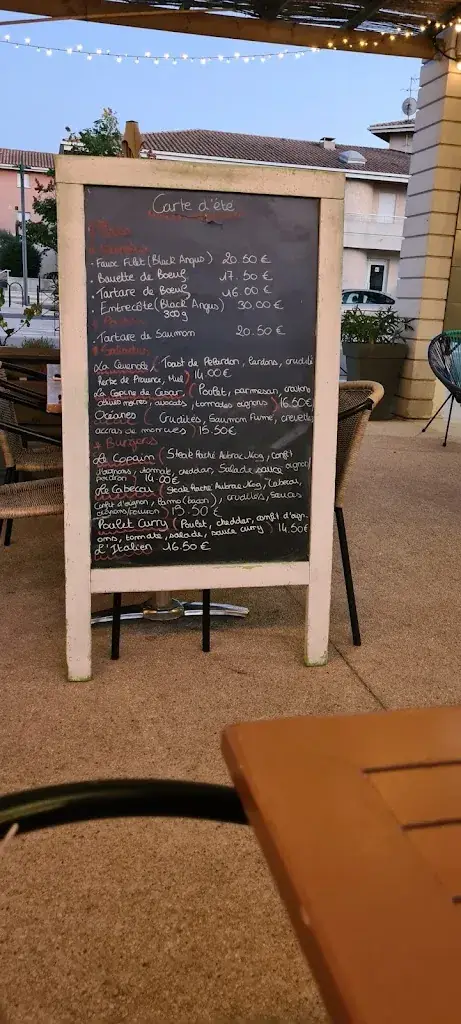 Carte d'été
Plats
. Faux Filet (Black Angus) 20.50 €
. Bavette de Boeuf 17.50 €
. Tartare de Boeuf 16.00 €
. Entrecôte (Black Angus) 30.00 €
300g
. Tartare de Saumon 20.50 €
Salades
La Cévenole ( Toast de Pélardon, lardons, crudité
Herbe de Provence, Miel ) 14.00 €
La Copine de César ( Poulet, parmesan, croutons
olives noires, avocats, tomates, oignons ) 16.50€
Océanes ( Crudités, Saumon Fumé, crevette
accras de morues ) 15.50€
Burgers
Le Copain ( Steak Haché Aubrac 140g, confit
d'oignons, tomate, cheddar, Salade sauce oignon/
poivron ) 14.00 €
Le Cabecou ( Steak Haché Aubrac 140g, Cabecou,
confit d'oignon, (bacon), crudités, sauces
oignons/poivron ) 15.50 €
Poulet Curry ( Poulet, cheddar, confit d'oign-
ons, tomate, salade, sauce curry ) 14.50€
L'Italien 16.50 €